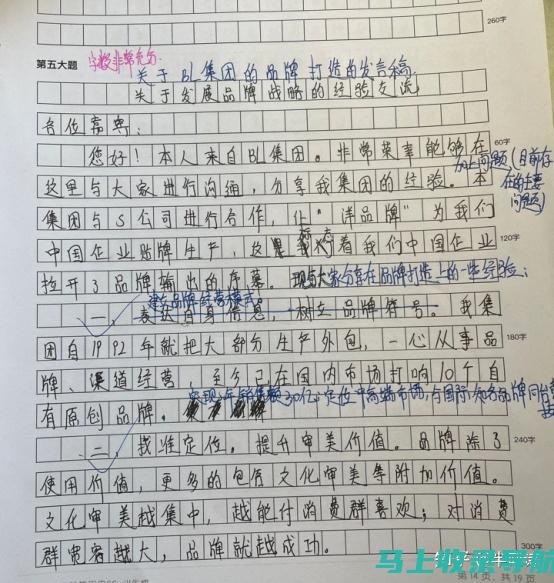 260字
第五大题
字数非常充分
关于BL集团的品牌打造的发言稿
关于发展品牌战略的经验交流
各位嘉宾:
您好!本人来自BL集团。非常荣幸能够在
60字
加上问题(目前存在的主要问题)
这里与大家进行沟通,分享我集团的经验。本
集团与S公司进行合作,让“洋品牌”为我们
中国企业贴牌生产,这标志着我们中国企业
120字
拉开了品牌输出的序幕。现与大家分享在品牌打造上的一些经验:
建立品牌经营模式。
一,表达自身信息,树立品牌符号。我集
团自1992年就把大部分生产外包,一心从事品
180字
牌、渠道经营,至今已在国内市场打响10个自
有原创品牌。
实现年销售额30亿;定位中高端市场,与国际知名品牌同台竞技
二,找准定位。提升审美价值。品牌除了
240字
使用价值,更多的包含文化审美等附加价值。
文化审美越集中,越能什消费群喜欢;对消费
群宽容越大,品牌就越成功。
300字
第14页,共19页
马上收录导航